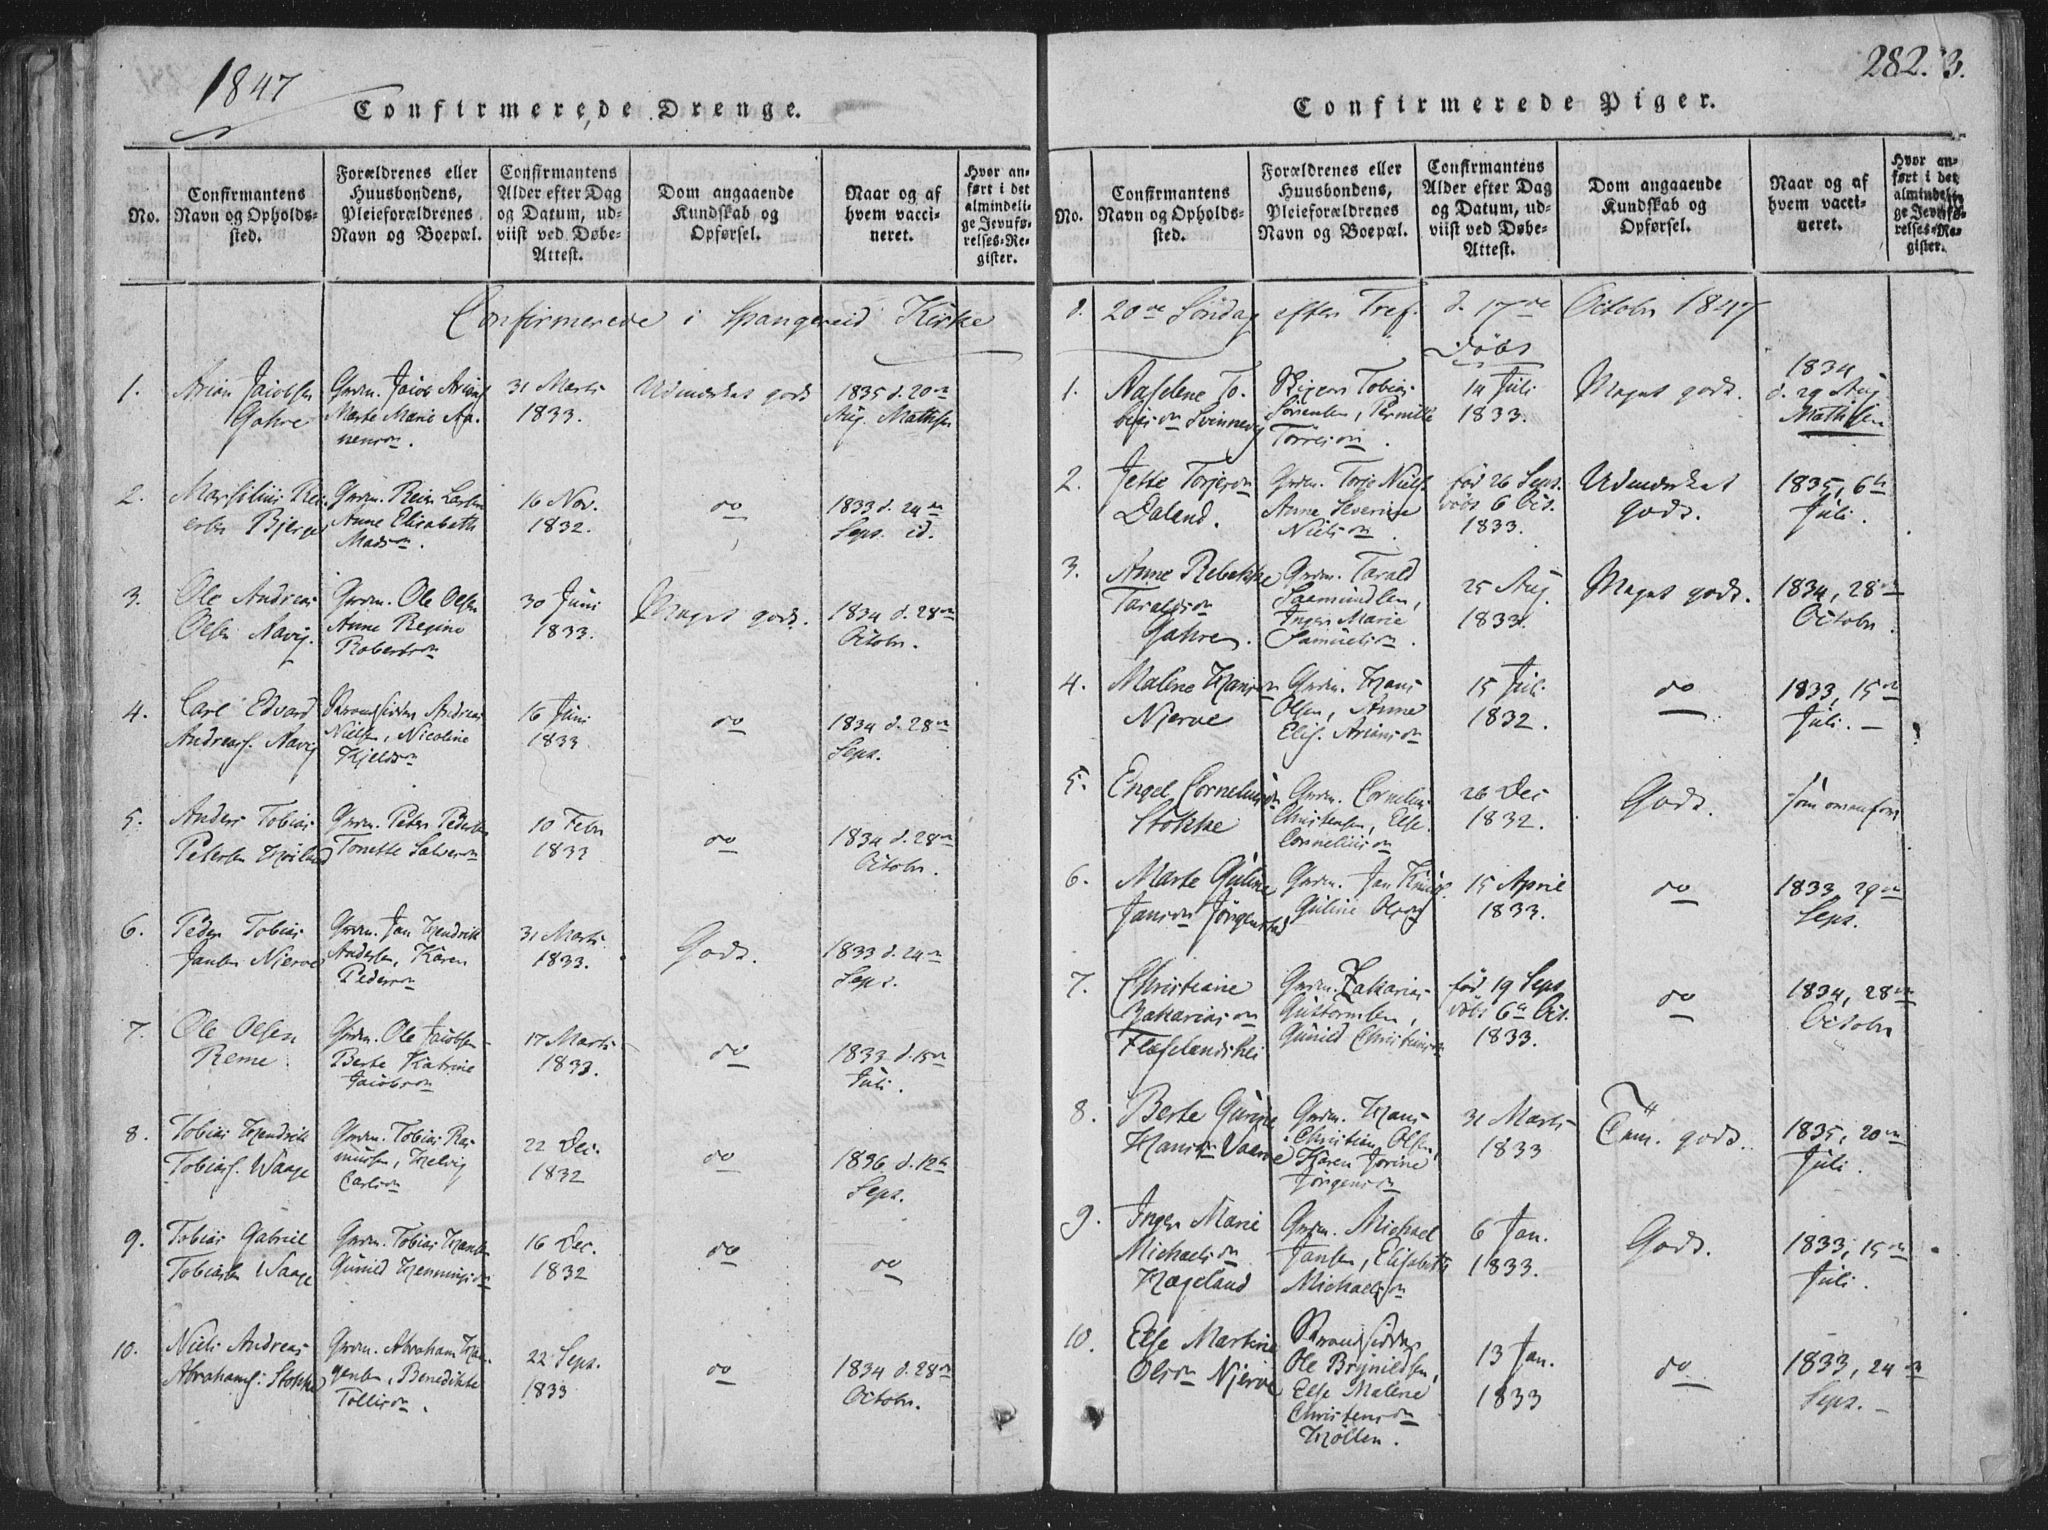 1847
Confirmerede Drenge.
No.
Confirmantens
Navn og Opholds-
sted.
Forældrenes eller
Huusbondens,
Pleieforældrenes
Navn og Boepæl.
Confirmantens
Alder efter Dag
og Datum, ud-
viist ved Døbe-
Attest.
Dom angaaende
Kundskab og
Opførsel.
Naar og af
hvem vacci-
neret.
Hvor an-
ført i det
almindeli-
ge Jevnfø-
relses-Re-
gister.
Confirmerede i Spangereid Kirke
1.
Arian Jacobsen
Gahre
Grdm. Jacob Arians
Marte Marie An-
nensen.
31 Marts
1833.
Udmærket godt
1835 d. 20de
Aug. Mathisen
2.
Marsilius Rei-
ersen Bjerge
Grdm. Reier Larsen
Anne Elisabeth
Madsen.
16 Nov.
1832.
do
1833 d. 24de
Sept. id.
3.
Ole Andreas
Olsen Navig.
Grdm. Ole Olsen
Anne Regine
Robertsen
30 Juni
1833.
Meget godt.
1834 d. 28de
Octobr.
4.
Carl Edvard
Andreas. Navig
Strandsidder Andreas
Nielsen, Nicoline
Kjeldsen
16 Juni
1833
do
1834 d. 28de
Sept.
5.
Anders Tobias
Petersen
Grdm. Peter Pedersen
Tonette Salvesen
10 Febr
1833
do
1834 d. 28de
Octobr.
6.
Peder Tobias
Jansen Njerve
Grdm. Jan Hendrik
Andersen, Karen
Pedersen
31 Marts
1833.
Godt.
1833 d. 24de
Sept.
7.
Ole Olsen
Reme.
Grdm. Ole Jacobsen
Berte Katrine
Jacobsen
17 Marts
1833.
do
1833 d. 15de
Juli.
8.
Tobias Hendrik
Tobias. Waage
Grdm. Tobias Ras-
mussen, Helvig
Carlsen
22 Dec.
1832
do
1836 d. 12te
Sept.
9.
Tobias Gabriel
Tobiasen Waage
Grdm. Tobias Hansen
Gunild Henningsen
16 Dec.
1832
do
do
10.
Niels Andreas
Abrahams. Stokke
Grdm. Abraham Hau-
gensen, Benedikte
Tollisen.
22 Sept.
1833
do
1834 d. 28de
Octobr.
282.
Confirmerede Piger.
No.
Confirmantens
Navn og Opholds-
sted.
Forældrenes eller
Huusbondens,
Pleieforældrenes
Navn og Boepæl.
Confirmantens
Alder efter Dag
og Datum, ud-
viist ved Døbe-
Attest.
Dom angaaende
Kundskab og
Opførsel.
Naar og af
hvem vacci-
neret.
Hvor an-
ført i det
almindeli-
ge Jevnfø-
relses-Re-
gister.
d. 20de Søndag efter Tref. d. 17de Octobr 1847
Døbt
1.
Aaselene To-
biasen Svinnevig
Tobias
Sørensen, Pernille
Tørresen.
14 Juli
1833.
Meget godt.
1834
d. 29 Aug
Mathisen
2.
Jette Torjesen
Daland.
Grdm. Torje Niels.
Anne Severine
Nielsen.
fød 26 Sept.
døbt 6 Oct.
1833.
Udmærket
godt.
1835, 6te
Juli.
3.
Anne Rebekke
Taraldsen
Gahre.
Grdm. Tarald
Saamundsen,
Inger Marie
Samuelsen.
25 Aug.
1833.
Meget godt.
1834, 28de
Octobr.
4.
Malene Hansen
Njerve
Grdm. Hans
Olsen, Anne
Elis. Ariansen
15 Juli
1832.
do
1833, 15de
Juli. –
5.
Engel Corneliusen
Stokke
Grdm. Cornelius
Christensen, Else
Corneliusen
26 Dec
1832.
Godt.
som ovenfor
6.
Marte Guline
Jansen Jørgenstad
Grdm. Jan Knuds.
Guline Olsen
15 April
1833.
do
1833 29de
Sept.
7.
Christiane
Zakariasen
Flaselandshei
Grdm. Zakarias
Guttormsen,
Gunild Christensen
fød 19 Sept
døbt 6te Oct.
1833.
do
1834, 28de
Octobr
8.
Berte Gurine
Hansen Vaarve
Grdm. Hans
Christian Olsen,
Karen Jorine
Jørgensen
31 Marts
1833
Tem. godt.
1835, 20de
Juli.
9.
Inger Marie
Michaelsen
Hageland
Grdm. Michael
Jansen, Elisabeth
Michaelsen
6 Jan.
1833.
Godt.
1833, 15de
Juli.
10.
Else Martine
Olsen Njerve
Strandsidder
Ole Brynildsen,
Else Malene
Christensen
Møllen.
13 Jan.
1833
do
1833, 24de
Sept. –